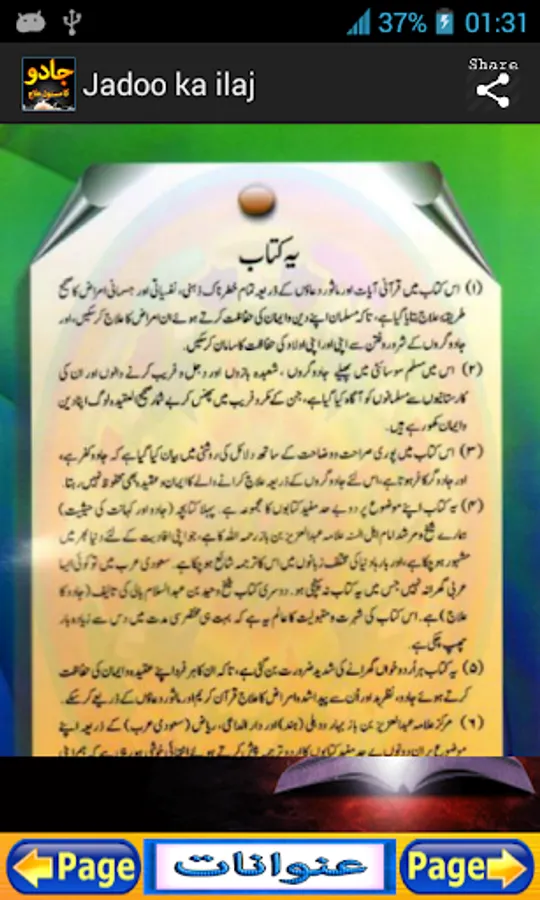 37% 01:31
جادو
کا مسنون علاج
Jadoo ka ilaj
Share
یہ کتاب
(۱) اس کتاب میں قرآنی آیات اور ماثور دعاؤں کے ذریعہ تمام خطرناک ذہنی، نفسیاتی اور جسمانی امراض کا صحیح
طریقۂ علاج بتایا گیا ہے، تاکہ مسلمان اپنے دین وایمان کی حفاظت کرتے ہوئے ان امراض کا علاج کرسکیں، اور
جادوگروں کے شرور وفتن سے اپنی اور اپنی اولاد کی حفاظت کا سامان کرسکیں۔
(۲) اس میں مسلم سوسائٹی میں پھیلے جادوگروں، شعبدہ بازوں اور دجل وفریب کرنے والوں اور ان کی
کارستانیوں سے مسلمانوں کو آگاہ کیا گیا ہے، جن کے مکروفریب میں پھنس کر بے شمار صحیح العقیدہ لوگ اپنا دین
وایمان کھو رہے ہیں۔
(۳) اس کتاب میں پوری صراحت ووضاحت کے ساتھ دلائل کی روشنی میں بیان کیا گیا ہے کہ جادو کفر ہے،
اور جادوگر کافر ہوتا ہے، اس لئے جادوگروں کے ذریعہ علاج کرانے والے کا ایمان وعقیدہ بھی محفوظ نہیں رہتا۔
(۴) یہ کتاب اپنے موضوع پر دو بے حد مفید کتابوں کا مجموعہ ہے۔ پہلا کتابچہ (جادو اور کہانت کی حیثیت)
ہمارے شیخ ومرشد امام اہل السنہ علامہ عبدالعزیز بن باز رحمہ اللہ کا ہے، جو اپنی افادیت کے لئے دنیا بھر میں
مشہور ہوچکا ہے، اور بارہا دنیا کی مختلف زبانوں میں اس کا ترجمہ شائع ہوچکا ہے۔ سعودی عرب میں تو کوئی ایسا
عربی گھرانہ نہیں جس میں یہ کتاب نہ پہنچی ہو۔ دوسری کتاب شیخ وحید بن عبدالسلام بالی کی تالیف (جادو کا
علاج) ہے۔ اس کتاب کی شہرت ومقبولیت کا عالم یہ ہے کہ بہت ہی مختصر سی مدت میں دس سے زیادہ بار
چھپ چکی ہے۔
(۵) یہ کتاب ہر اُردو خواں گھرانے کی شدید ضرورت بن گئی ہے، تاکہ ان کا ہر فرد اپنے عقیدہ وایمان کی حفاظت
کرتے ہوئے جادو، نظر بد اور اُن سے پیدا شدہ امراض کا علاج قرآن کریم اور ماثور دعاؤں کے ذریعے کرسکے۔
(۶) مرکز علامہ عبدالعزیز بن باز بہار ودہلی (ہند) اور دار الداعی، ریاض (سعودی عرب) کے ذریعہ اپنے
موضوع پر ان دونوں بے حد مفید کتابوں کا اردو ترجمہ پیش کرتے ہوئے انتہائی خوشی ہو رہی ہے کہ ہم اپنی
Page
عنوانات
Page